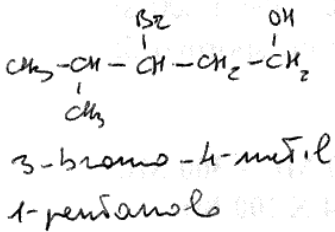 Br OH
CH3-CH-CH-CH2-CH2
CH3
3-bromo-4-metil
1-pentanolo